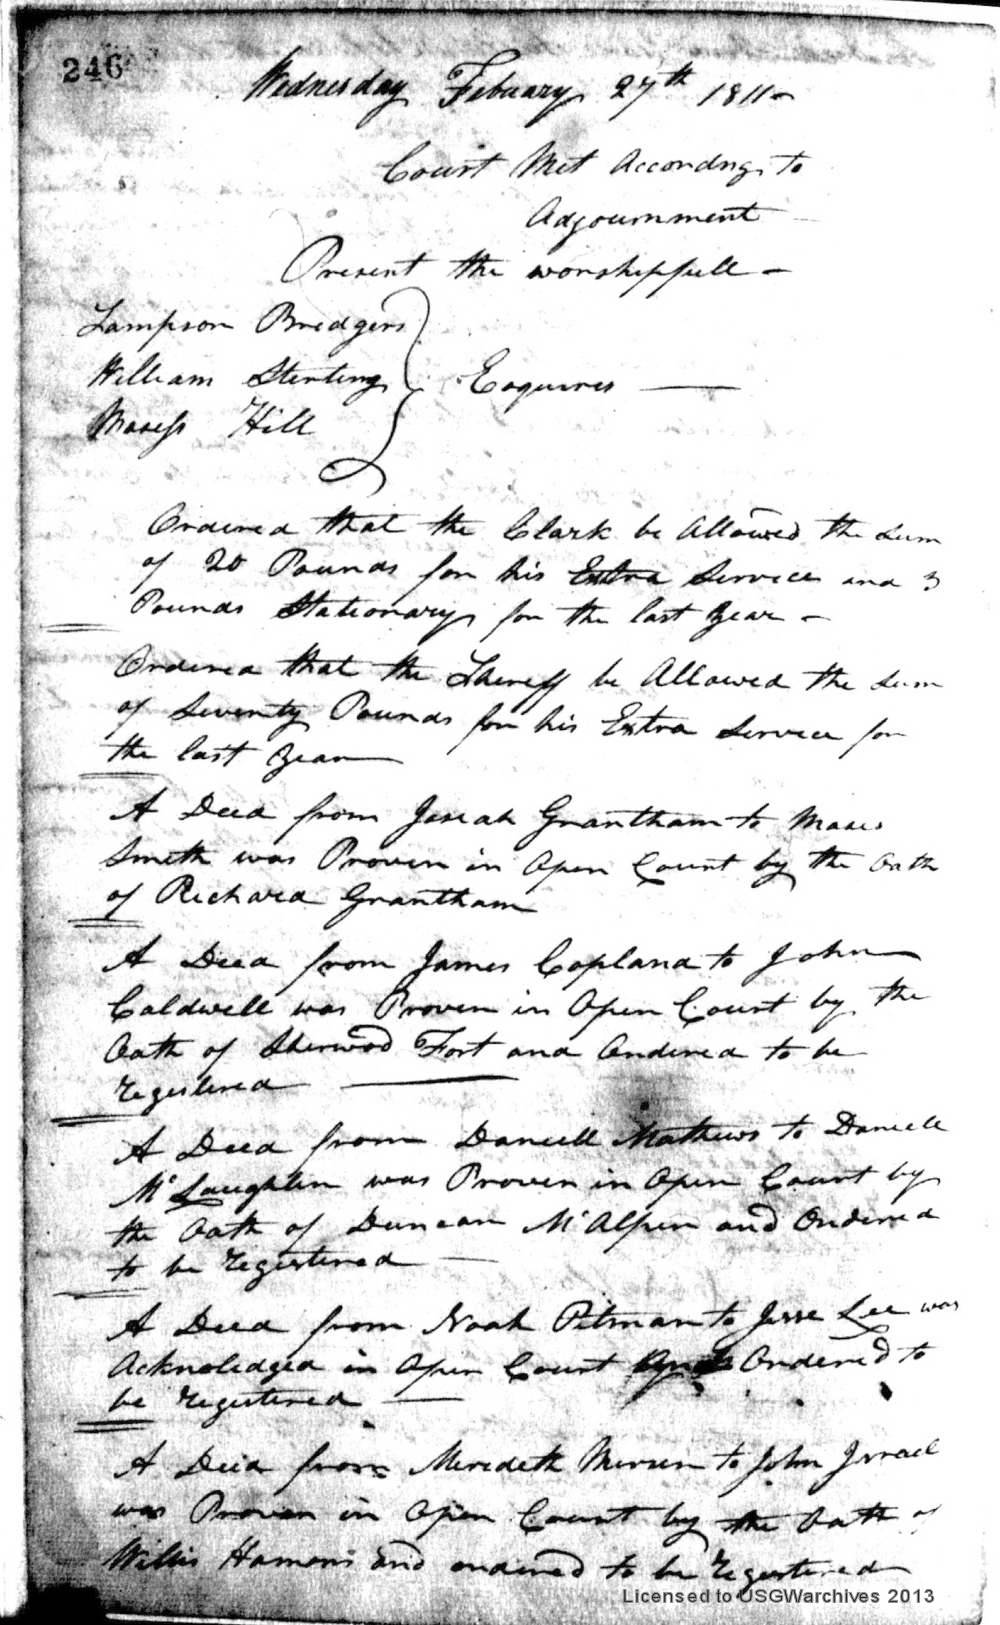 246
Wednesday Febuary 27th 1811
Court Met Accordng to
Adjournment
Present the worshippfull
Sampson Bridgers
William Sterling
Moses Hill
Esquires
Ordered that the Clark be Allowed the Sum
of 20 Pounds for his Extra Services and 3
Pounds Stationary for the last Year
Ordered that the Sheriff be Allowed the Sum
of Seventy Pounds for his Extra Service for
the last Year
A Deed from Josiah Grantham to Moses
Smith was Proven in Open Court by the Oath
of Richard Grantham
A Deed from James Copland to John
Caldwell was Proven in Open Court by the
Oath of Sherwood Fort and Ordered to be
registered
A Deed from Daniell Mathews to Daniell
McLaughlin was Proven in Open Court by
the Oath of Duncan McAlpin and Ordered
to be registered
A Deed from Noah Pitman to Jesse Lee was
Acknoledged in Open Court And Ordered to
be registered
A Deed from Meredeth to John Israel
was Proven in Open Court by the Oath of
Willis Hamons and ordered to be registered
Licensed to USGWarchives 2013